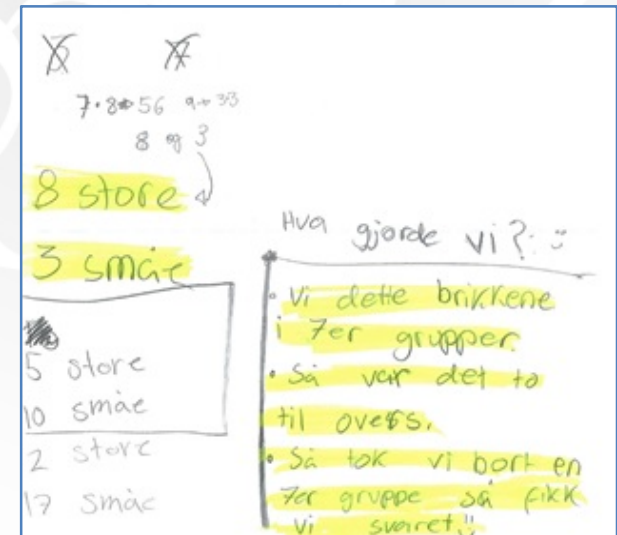 7·8=56
8 og 3
8 store
3 småe
5 store
10 småe
2 store
17 småe
Hva gjorde vi?:
• Vi delte brikkene
i 7er grupper.
• Så var det to
til overs.
• Så tok vi bort en
7er gruppe så fikk
vi svaret.